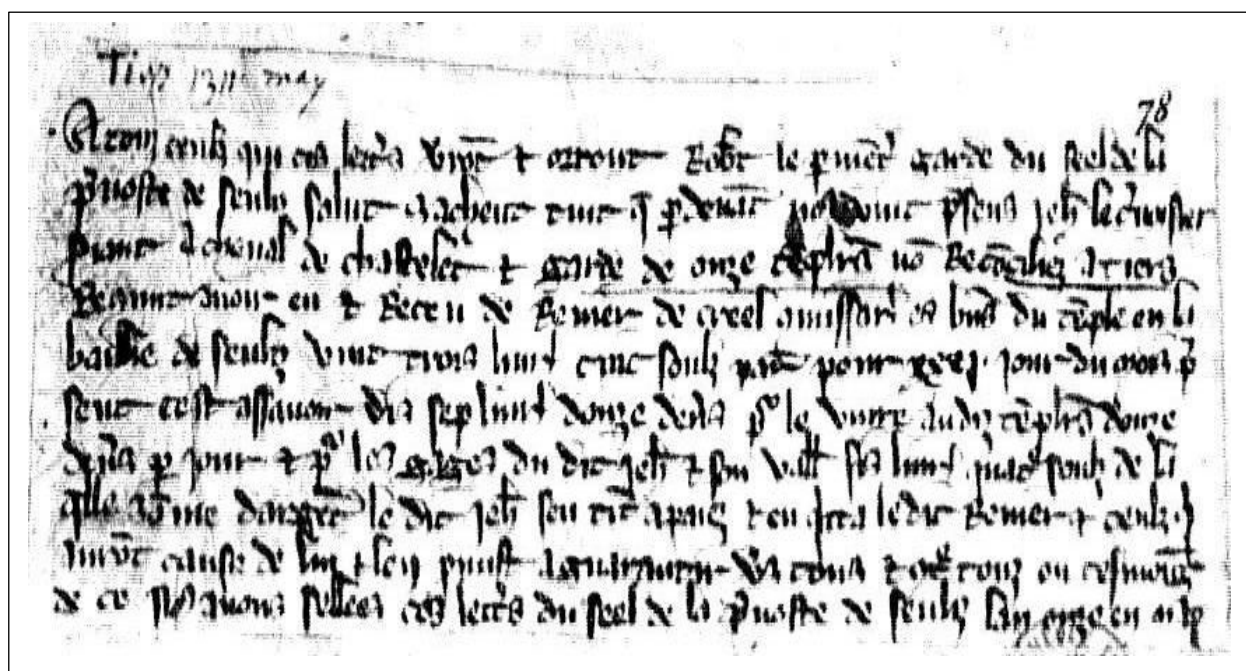 Tiers 1311 may
78
A touz ceuls qui ces lettres verront et orront Robert le parmentier garde du seel de la
prevoste de senliz salut sachent tuit que par devant nous vint presens Jehan le
serjant a cheval de chastelet et garde de onze templiers non Reconciliez a tiers
Recunut avoir eu et Receu de Renier de creel commissaire es biens du temple en la
baillie de senliz vint trois livres cinc souls pour xxxj jour du mois pre
sent cest assavoir dis sept livres doze deniers pour le vivre audiz templiers doze
deniers par jour et pour les gages du dit Jehan et son vallet sis livres quatre souls de la
quelle somme dargent le dit Jehan sen tint a paiez et en quita le dit Renier et ceuls
cause de lui et len promist a garantir vers touz et contre touz en tesmoing
de ce nous avons sellees ces lettres du seel de la prevoste de senliz lan onze en